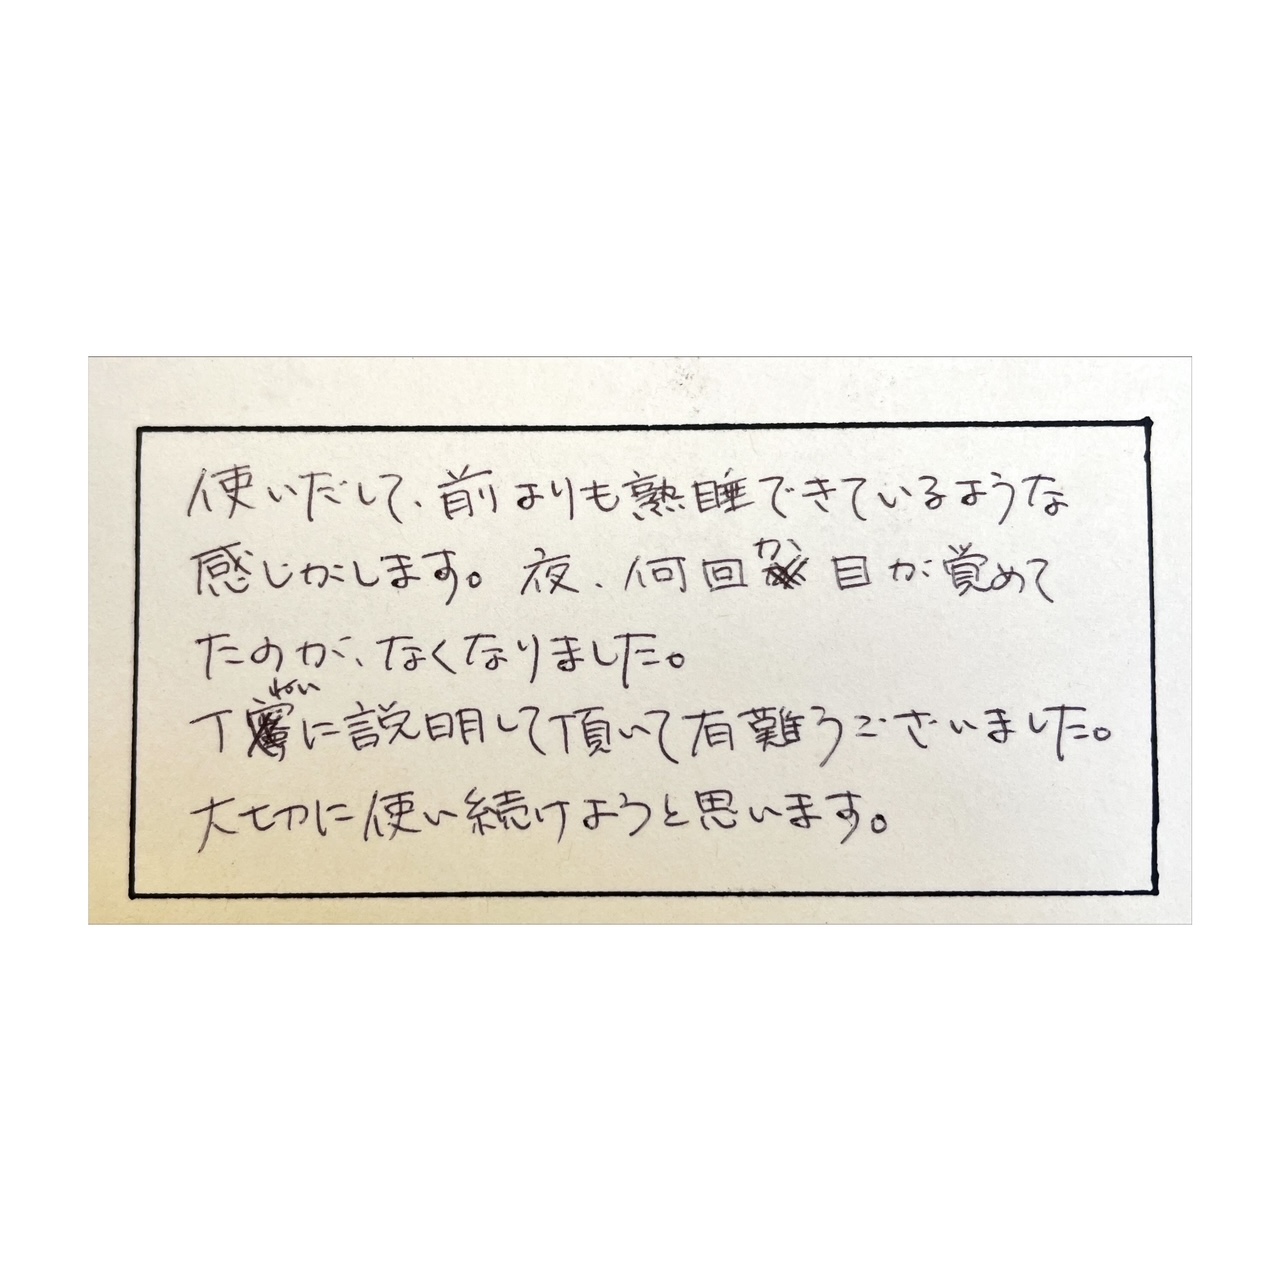 使いだして、前よりも熟睡できているような
感じがします。夜、何回か目が覚めて
たのが、なくなりました。
丁ねいに説明して頂いて有難うございました。
大切に使い続けようと思います。